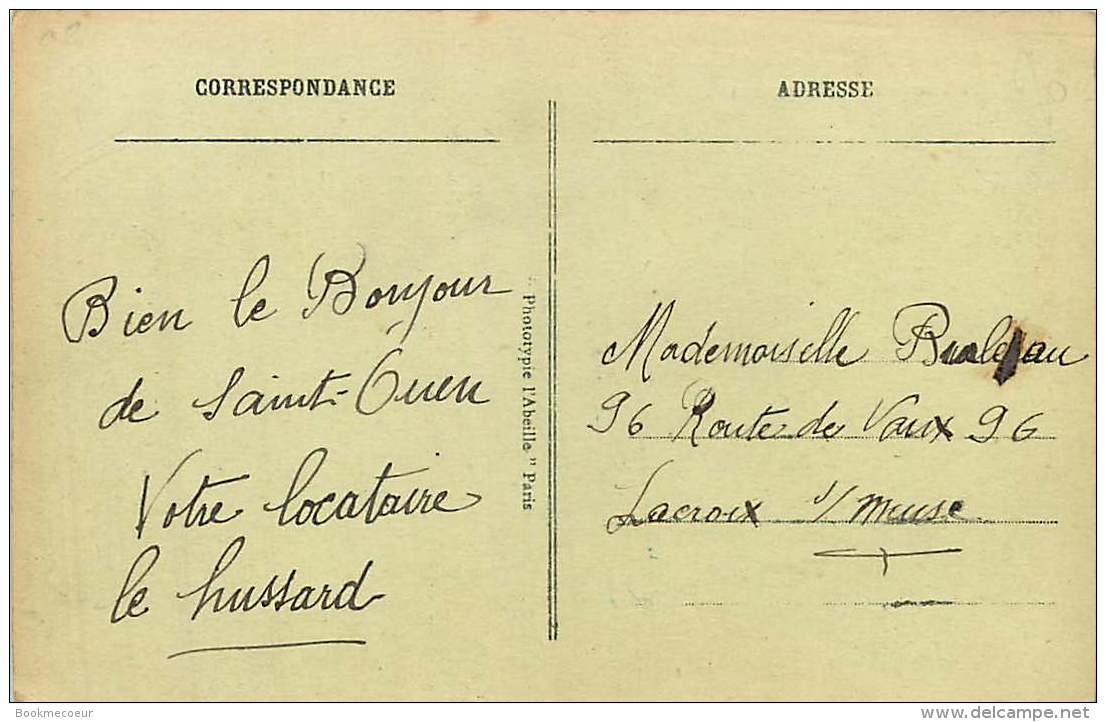 CORRESPONDANCE
Bien le Bonjour
de Saint-Ouen
Votre locataire
le hussard
" Phototypie l'Abeille " Paris
ADRESSE
Mademoiselle
96 Route de Vaux 96
Lacroix s/ Meuse
Bookmecoeur
www.delcampe.net